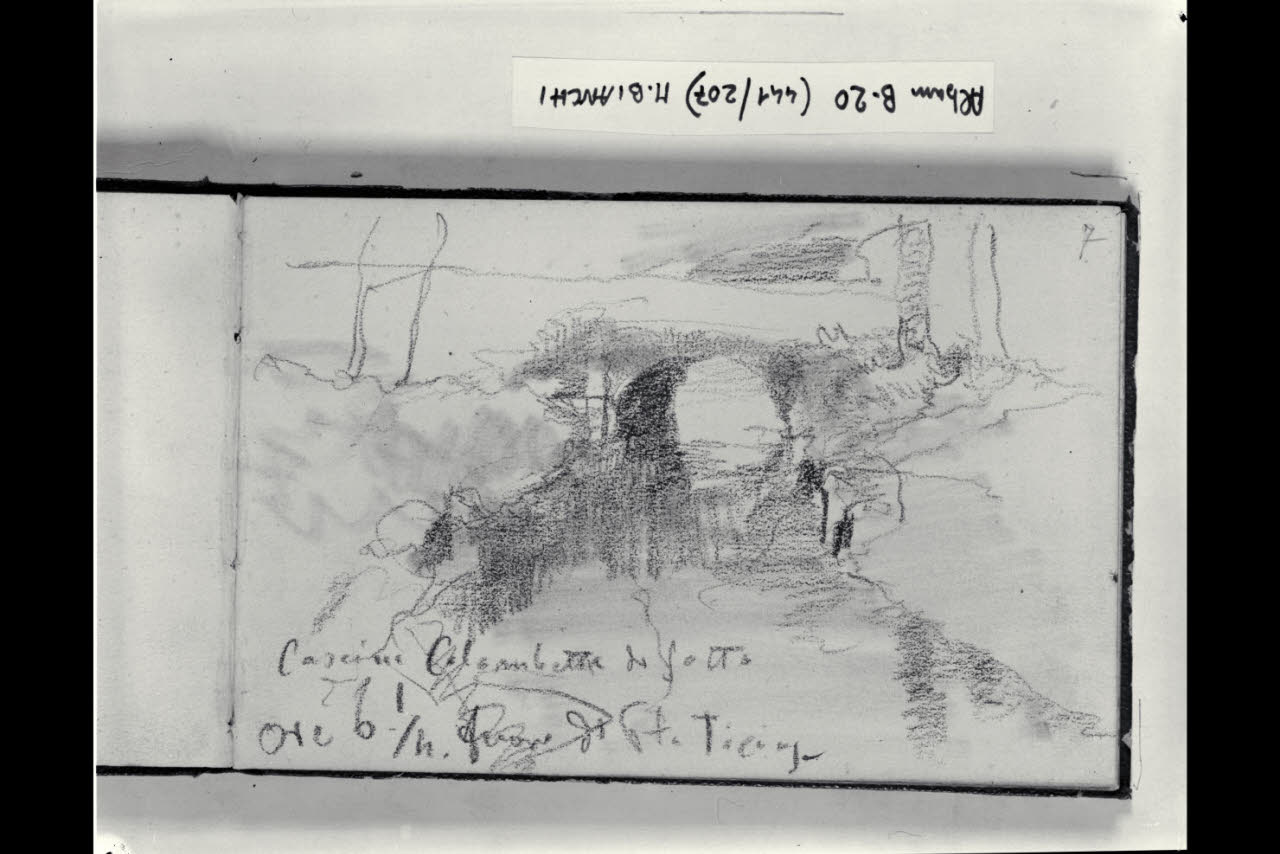 Album B-20 (441/207) M. BIANCHI
7
Cascina Colombetta di Sotto
ore 6 1/2. di Pta Ticinese